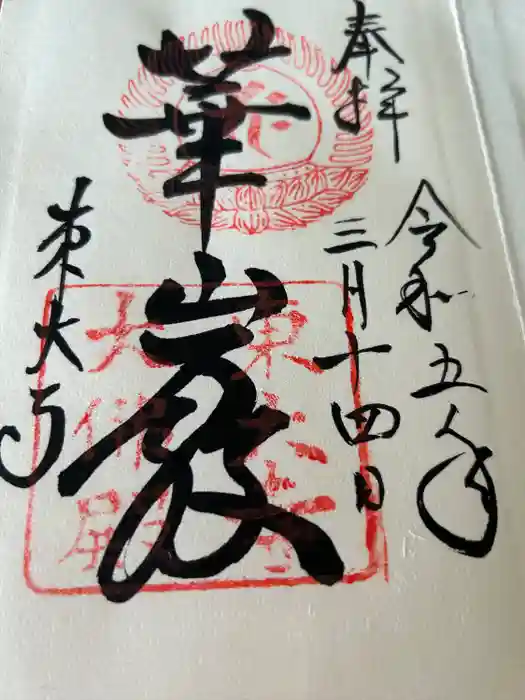 奉拝
令和五年
三月十四日
華嚴
東大寺
東大寺
大佛殿